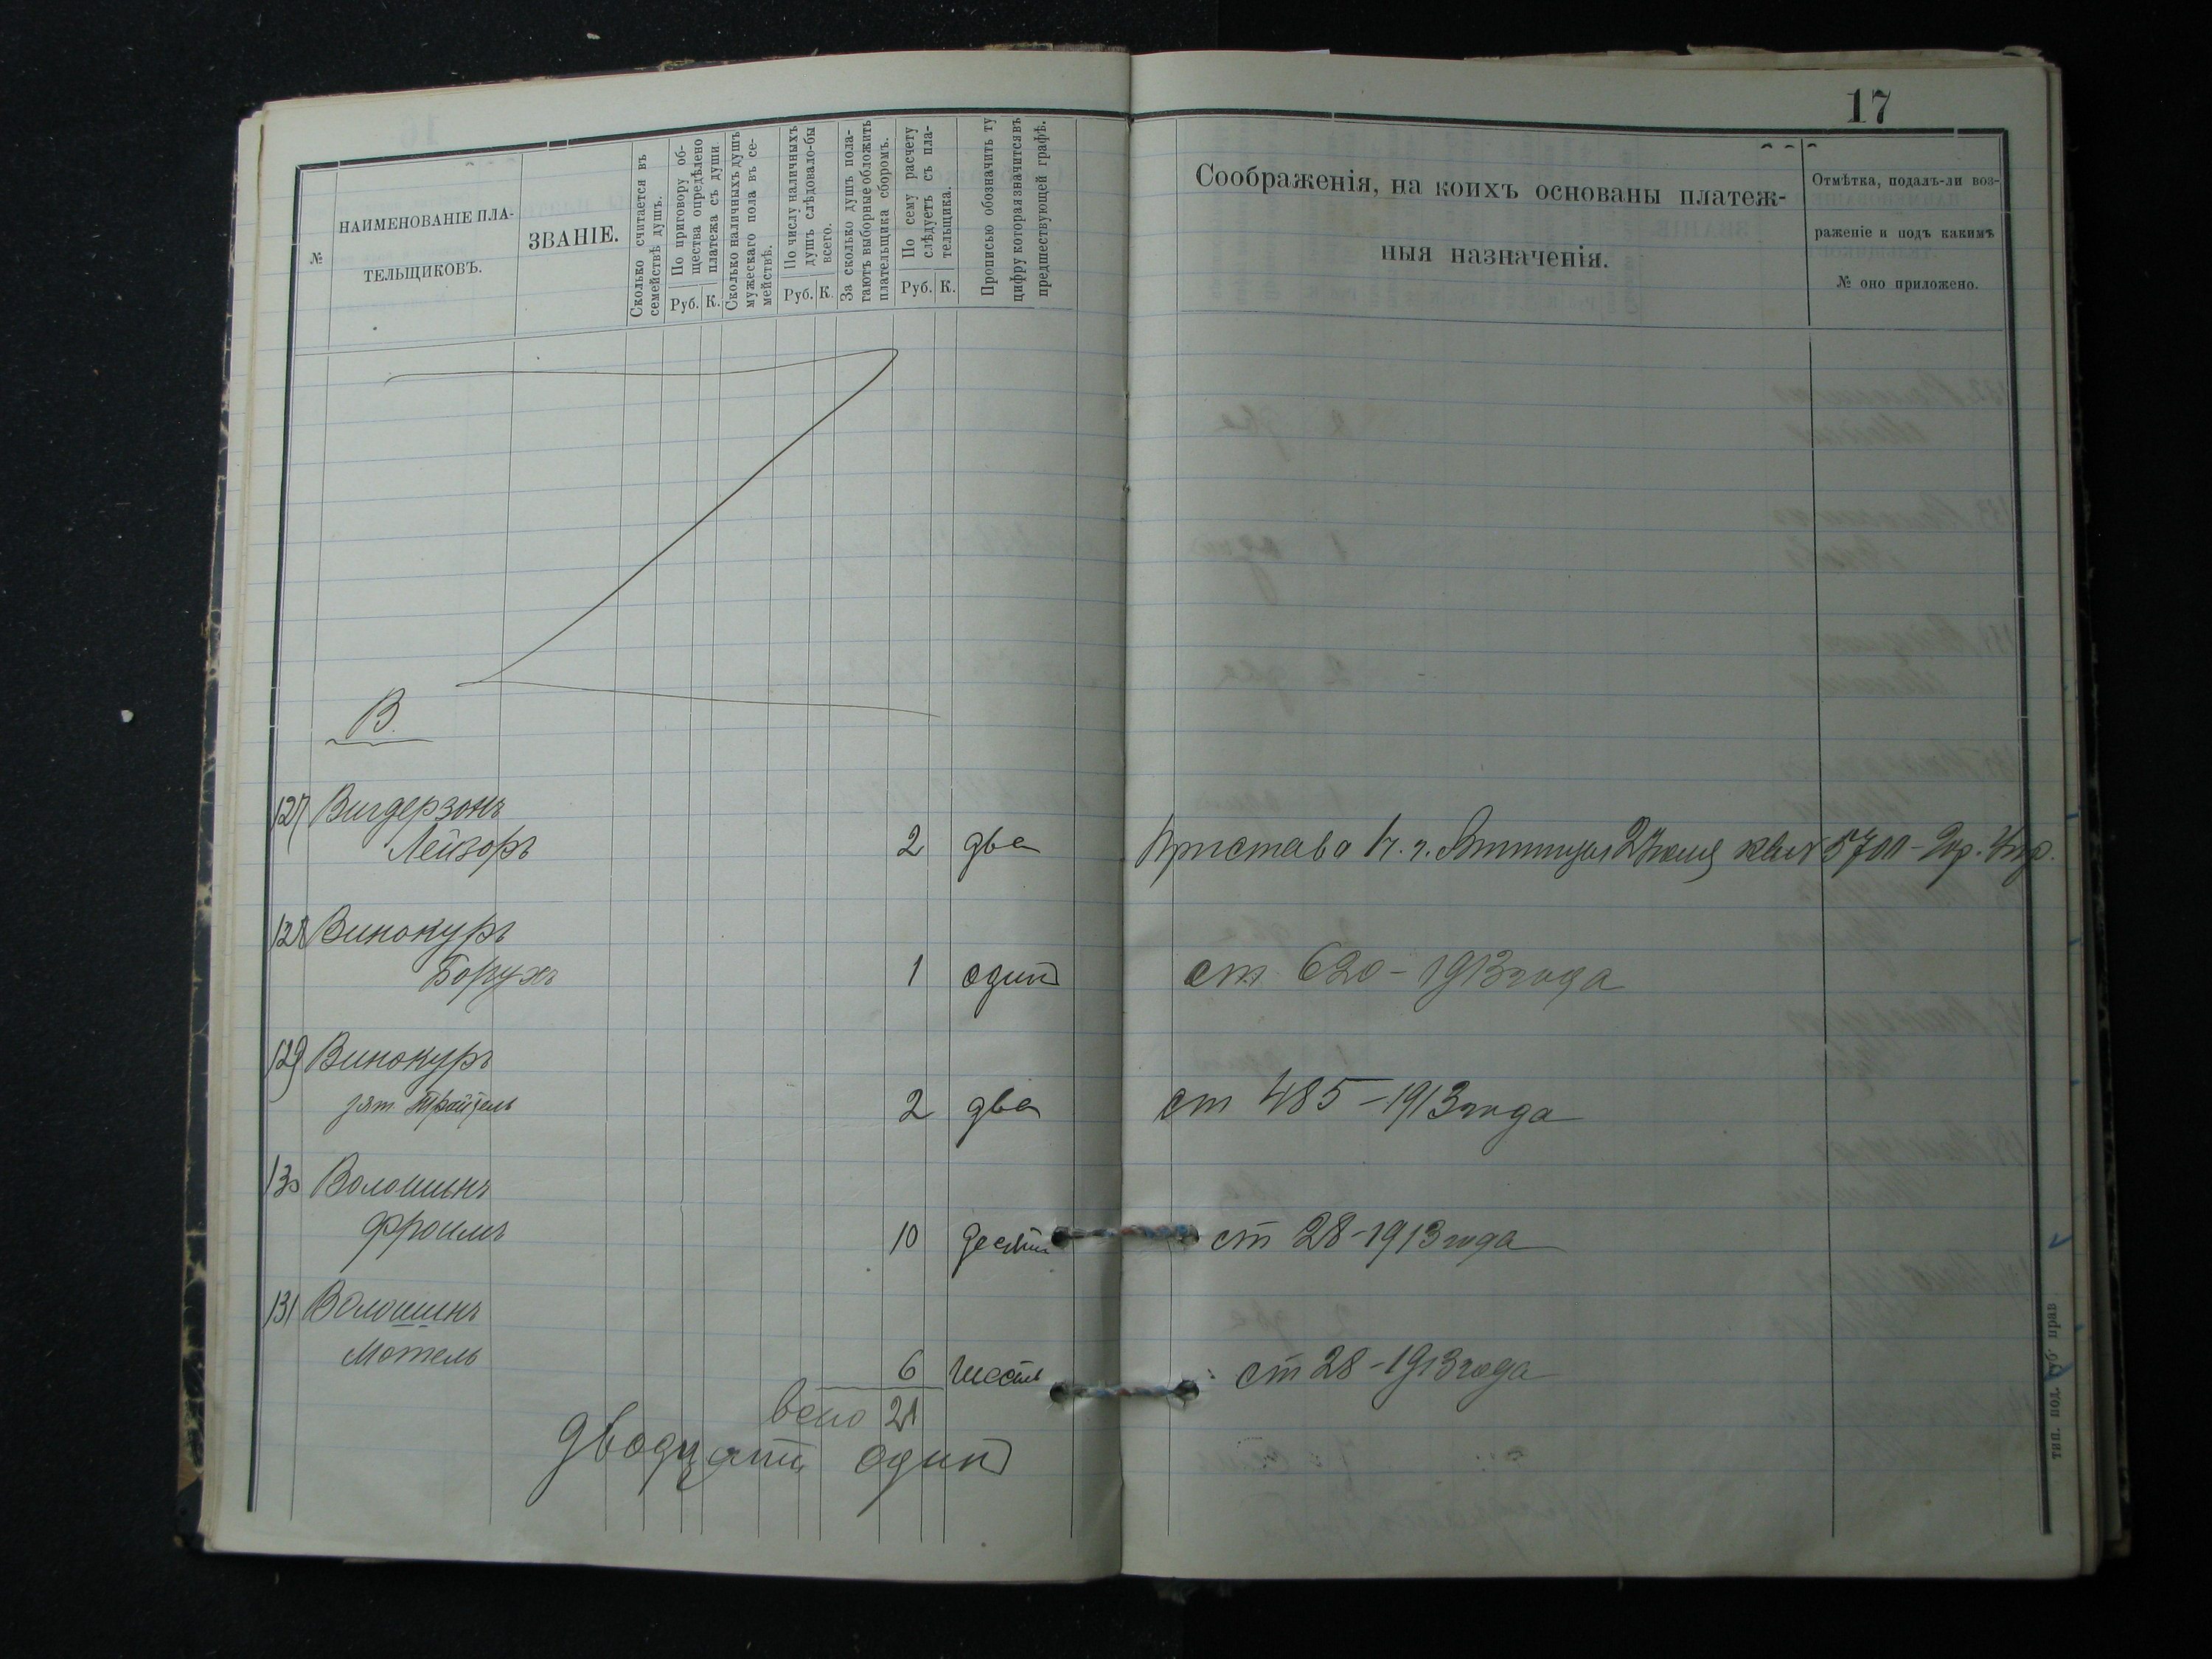 17
№
НАИМЕНОВАНІЕ ПЛА-
ТЕЛЬЩИКОВЪ.
ЗВАНІЕ.
Сколько считается въ
семействѣ душъ.
По приговору об-
щества опредѣлено
платежа съ души
Руб. К.
Сколько наличныхъ душъ
мужескаго пола въ се-
мействѣ.
По числу наличныхъ
душъ слѣдовало-бы
всего.
Руб. К.
За сколько душъ пола-
гаютъ выборные обложить
плательщика сборомъ.
По сему расчету
слѣдуетъ съ пла-
тельщика.
Руб. К.
Прописью обозначить ту
цифру которая значится въ
предшествующей графѣ.
Соображенія, на коихъ основаны платеж-
ныя назначенія.
Отмѣтка, подалъ-ли воз-
раженіе и подъ какимъ
№ оно приложено.
В.
127 Вигдерзонъ
Лейзоръ 2 два Пристава
128 Винокуръ
Борухъ 1 один ст 620-1913 года
129 Винокуръ
зят 2 два ст 485-1913 года
130 Волошинъ
Фроимъ 10 десять ст 28-1913 года
131 Волошинъ
Мотель 6 шесть ст 28-1913 года
всего 21
двадцать один
тип. под. губ. прав